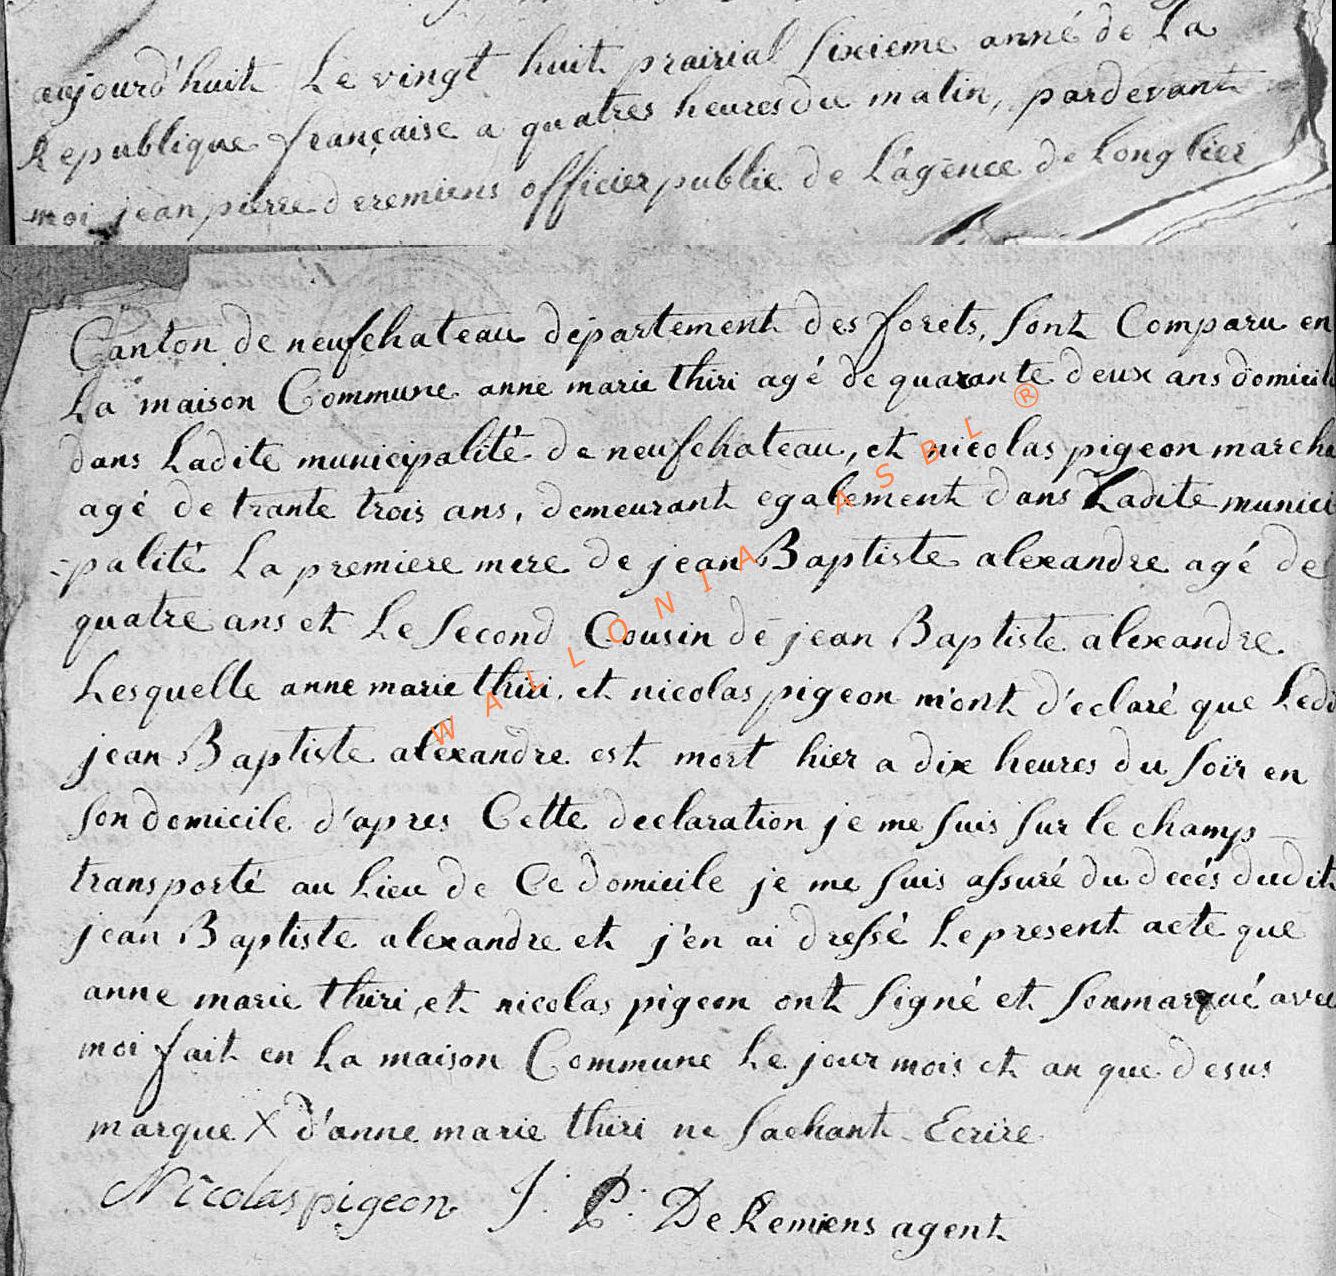 aujourd'huit Le vingt huit prairial sixieme anné de La
Republique française a quatres heures du matin, pardevant
moi jean pierre deremiens officier publie de L'agence de Longlier
Canton de neufchateau departement des forets, sont Comparu en
La maison Commune anne marie thiri agé de quarante deux ans domicil
dans Ladite municipalité de neufchateau, et nicolas pigeon marcha
agé de trante trois ans, demeurant egalement dans Ladite munici
-palité La premiere mere de jean Baptiste alexandre agé de
quatre ans et Le second Cousin de jean Baptiste alexandre.
Lesquelle anne marie thiri, et nicolas pigeon m'ont d'eclaré que Ledi
jean Baptiste alexandre est mort hier a dix heures du soir en
son domicile d'apres Cette declaration je me suis sur le champ
transporté au Lieu de Ce domicile je me suis assuré du decés dudit
jean Baptiste alexandre et j'en ai dressé Le present acte que
anne marie thiri, et nicolas pigeon ont signé et sonmarqué avec
moi fait en La maison Commune Le jour mois et an que desus
marque X d'anne marie thiri ne sachant Ecrire
Nicolas pigeon J. P. De Remiens agent
WALLONIA ASBL ®